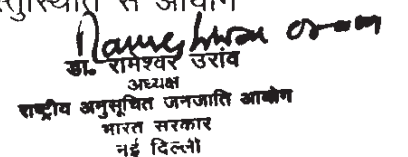 से आयोग
Rameshwar Oraon
डा. रामेश्वर उरांव
अध्यक्ष
राष्ट्रीय अनुसूचित जनजाति आयोग
भारत सरकार
नई दिल्ली